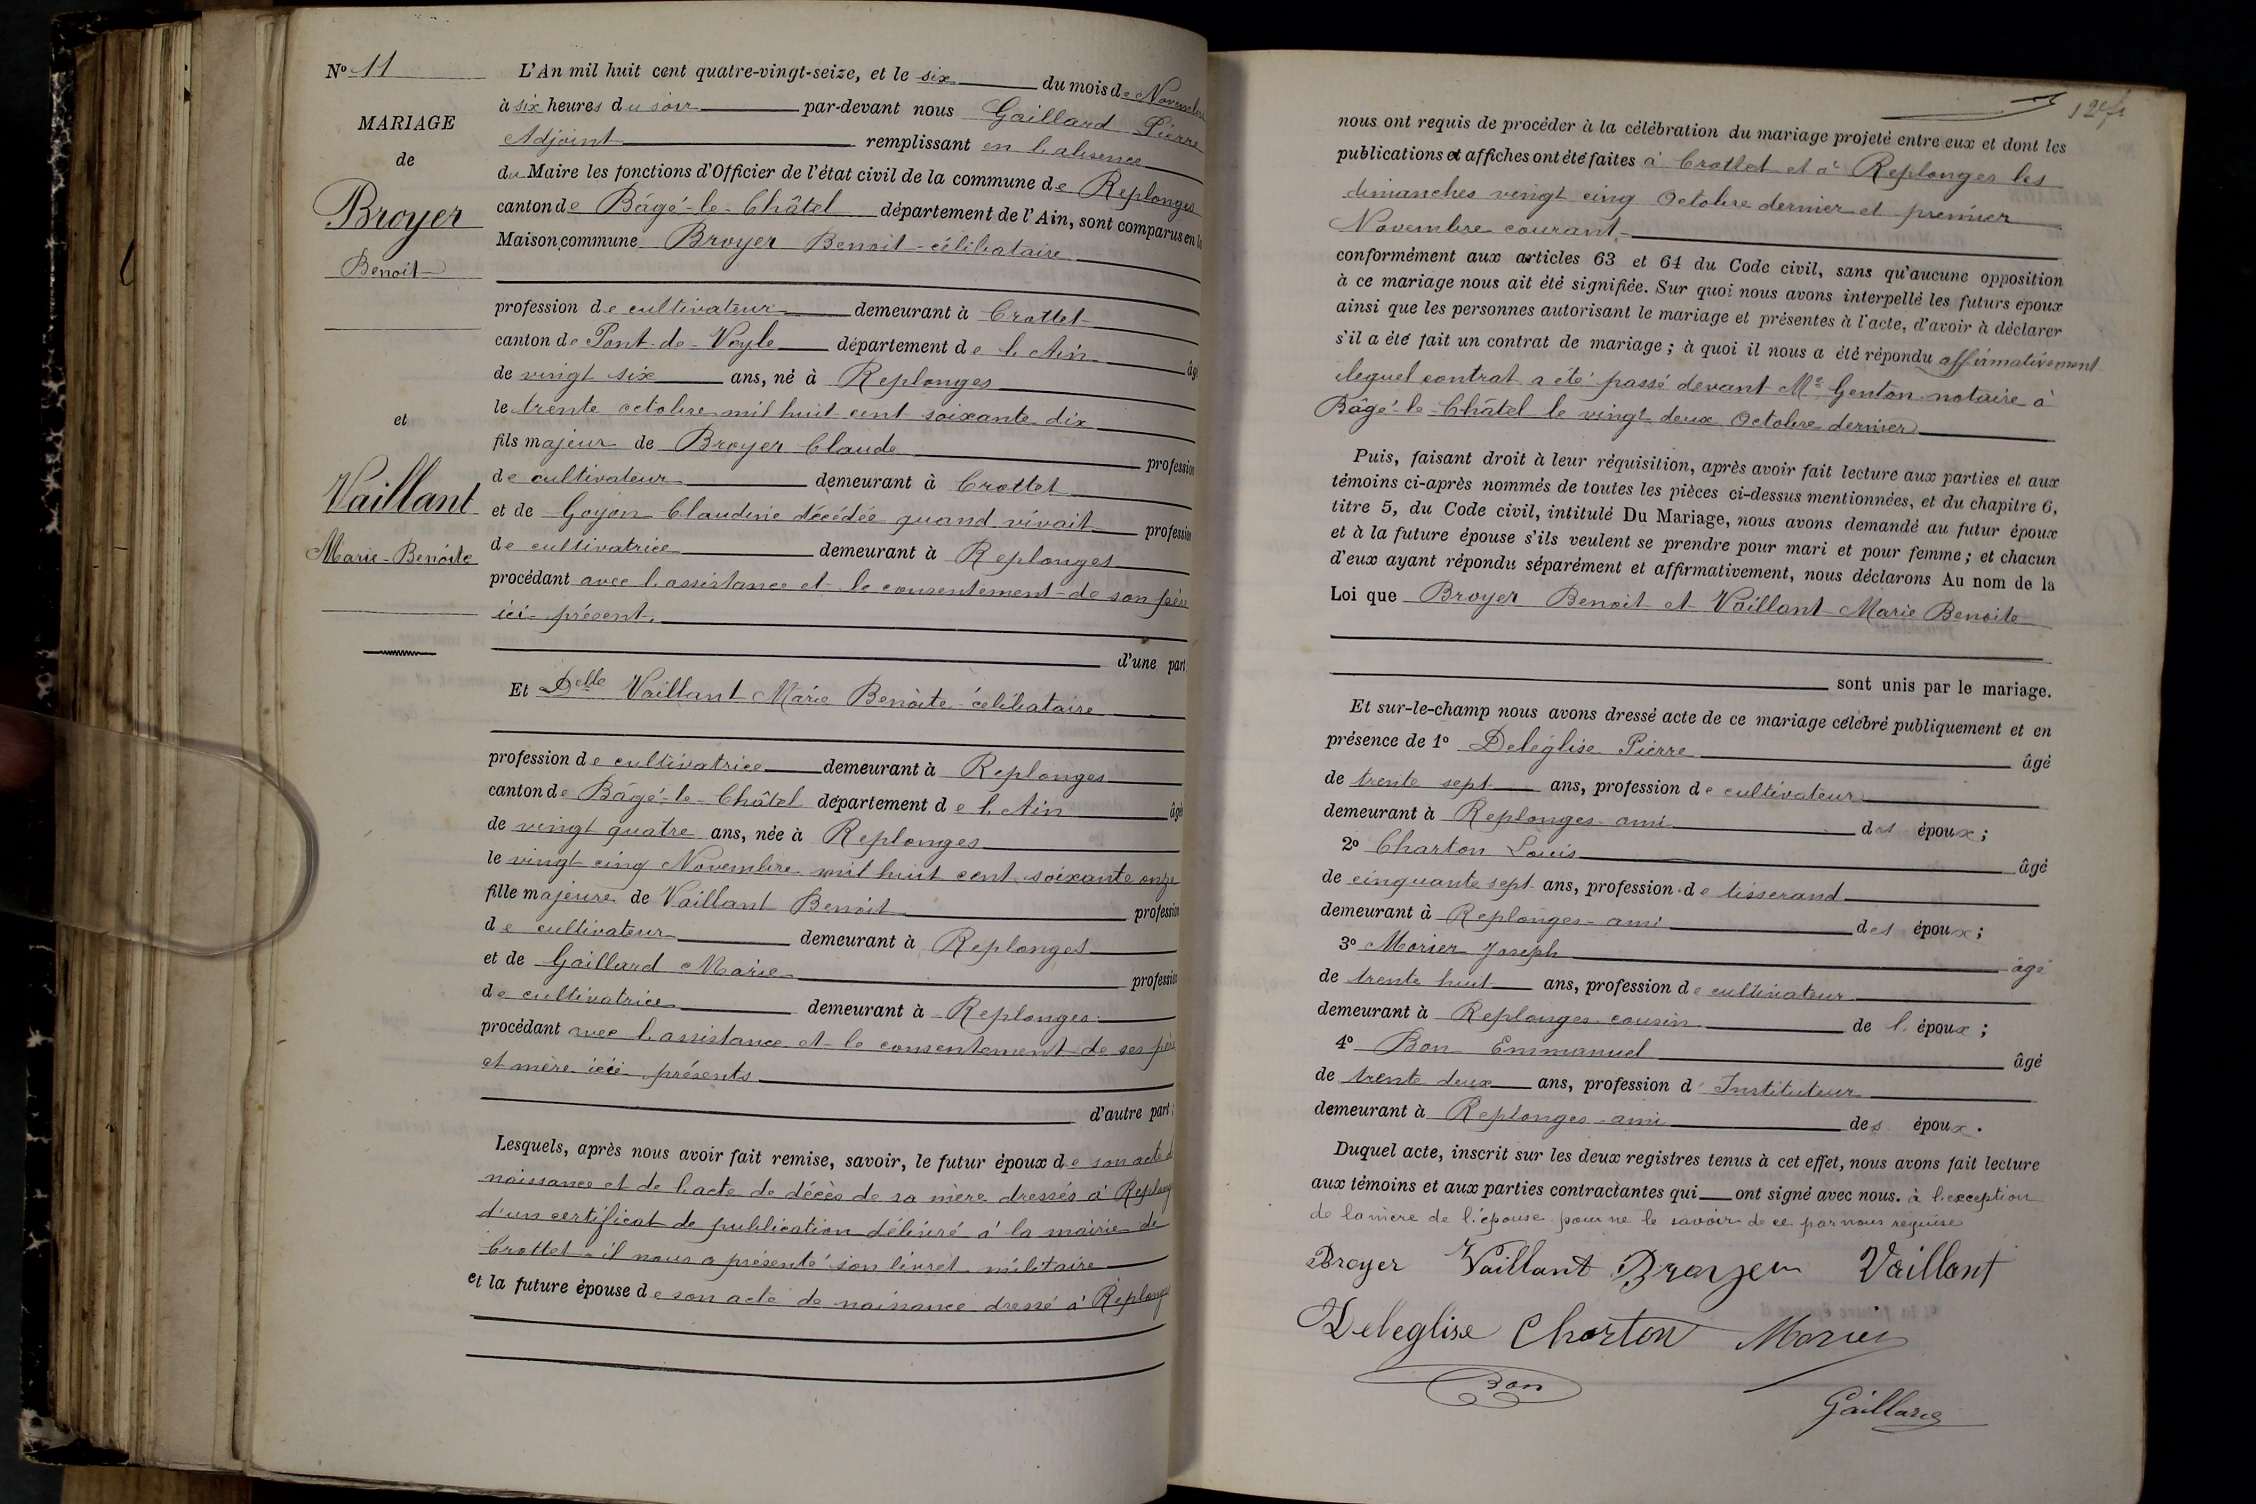 Nº 11
MARIAGE
de
Broyer
Benoit
et
Vaillant
Marie-Benoite
L'An mil huit cent quatre-vingt-seize, et le six du mois de Novembre
à six heures du soir par-devant nous Gaillard Pierre
Adjoint remplissant en l'absence
du Maire les fonctions d'Officier de l'état civil de la commune de Replonges
canton de Bâgé-le-Châtel département de l'Ain, sont comparus en la
Maison commune Broyer Benoit célibataire
profession de cultivateur demeurant à Crottet
canton de Pont-de-Veyle département de l'Ain âgé
de vingt six ans, né à Replonges
le trente octobre mil huit cent soixante dix
fils majeur de Broyer Claude profession
de cultivateur demeurant à Crottet
et de Goyon Claudine décédée quand vivait profession
de cultivatrice demeurant à Replonges
procédant avec l'assistance et le consentement de son père
ici présent.
d'une part
Et Delle Vaillant Marie Benoite célibataire
profession de cultivatrice demeurant à Replonges
canton de Bâgé-le-Châtel département de l'Ain âgée
de vingt quatre ans, née à Replonges
le vingt cinq Novembre mil huit cent soixante onze
fille majeure de Vaillant Benoit profession
de cultivateur demeurant à Replonges
et de Gaillard Marie profession
de cultivatrice demeurant à Replonges
procédant avec l'assistance et le consentement de ses père
et mère ici présents
d'autre part;
Lesquels, après nous avoir fait remise, savoir, le futur époux de son acte de
naissance et de l'acte de décès de sa mère dressés à Replonges
d'un certificat de publication délivré à la mairie de
Crottet - il nous a présenté son livret militaire
et la future épouse de son acte de naissance dressé à Replonges
nous ont requis de procéder à la célébration du mariage projeté entre eux et dont les
publications et affiches ont été faites à Crottet et à Replonges les
dimanches vingt cinq Octobre dernier et premier
Novembre courant
conformément aux articles 63 et 64 du Code civil, sans qu'aucune opposition
à ce mariage nous ait été signifiée. Sur quoi nous avons interpellé les futurs époux
ainsi que les personnes autorisant le mariage et présentes à l'acte, d'avoir à déclarer
s'il a été fait un contrat de mariage; à quoi il nous a été répondu affirmativement
lequel contrat a été passé devant Me Genton notaire à
Bâgé-le-Châtel le vingt deux Octobre dernier
Puis, faisant droit à leur réquisition, après avoir fait lecture aux parties et aux
témoins ci-après nommés de toutes les pièces ci-dessus mentionnées, et du chapitre 6,
titre 5, du Code civil, intitulé Du Mariage, nous avons demandé au futur époux
et à la future épouse s'ils veulent se prendre pour mari et pour femme; et chacun
d'eux ayant répondu séparément et affirmativement, nous déclarons Au nom de la
Loi que Broyer Benoit et Vaillant Marie Benoite
sont unis par le mariage.
Et sur-le-champ nous avons dressé acte de ce mariage célébré publiquement et en
présence de 1º Deléglise Pierre âgé
de trente sept ans, profession de cultivateur
demeurant à Replonges ami des époux;
2º Charton Louis âgé
de cinquante sept ans, profession de tisserand
demeurant à Replonges - ami des époux;
3º Morier Joseph âgé
de trente huit ans, profession de cultivateur
demeurant à Replonges cousin de l'époux;
4º Bon Emmanuel âgé
de trente deux ans, profession d'Instituteur
demeurant à Replonges - ami des époux.
Duquel acte, inscrit sur les deux registres tenus à cet effet, nous avons fait lecture
aux témoins et aux parties contractantes qui ont signé avec nous. à l'exception
de la mère de l'épouse pour ne le savoir de ce par nous requise
Broyer Vaillant Broyer Vaillant
Deleglise Charton Morier
Bon
Gaillard